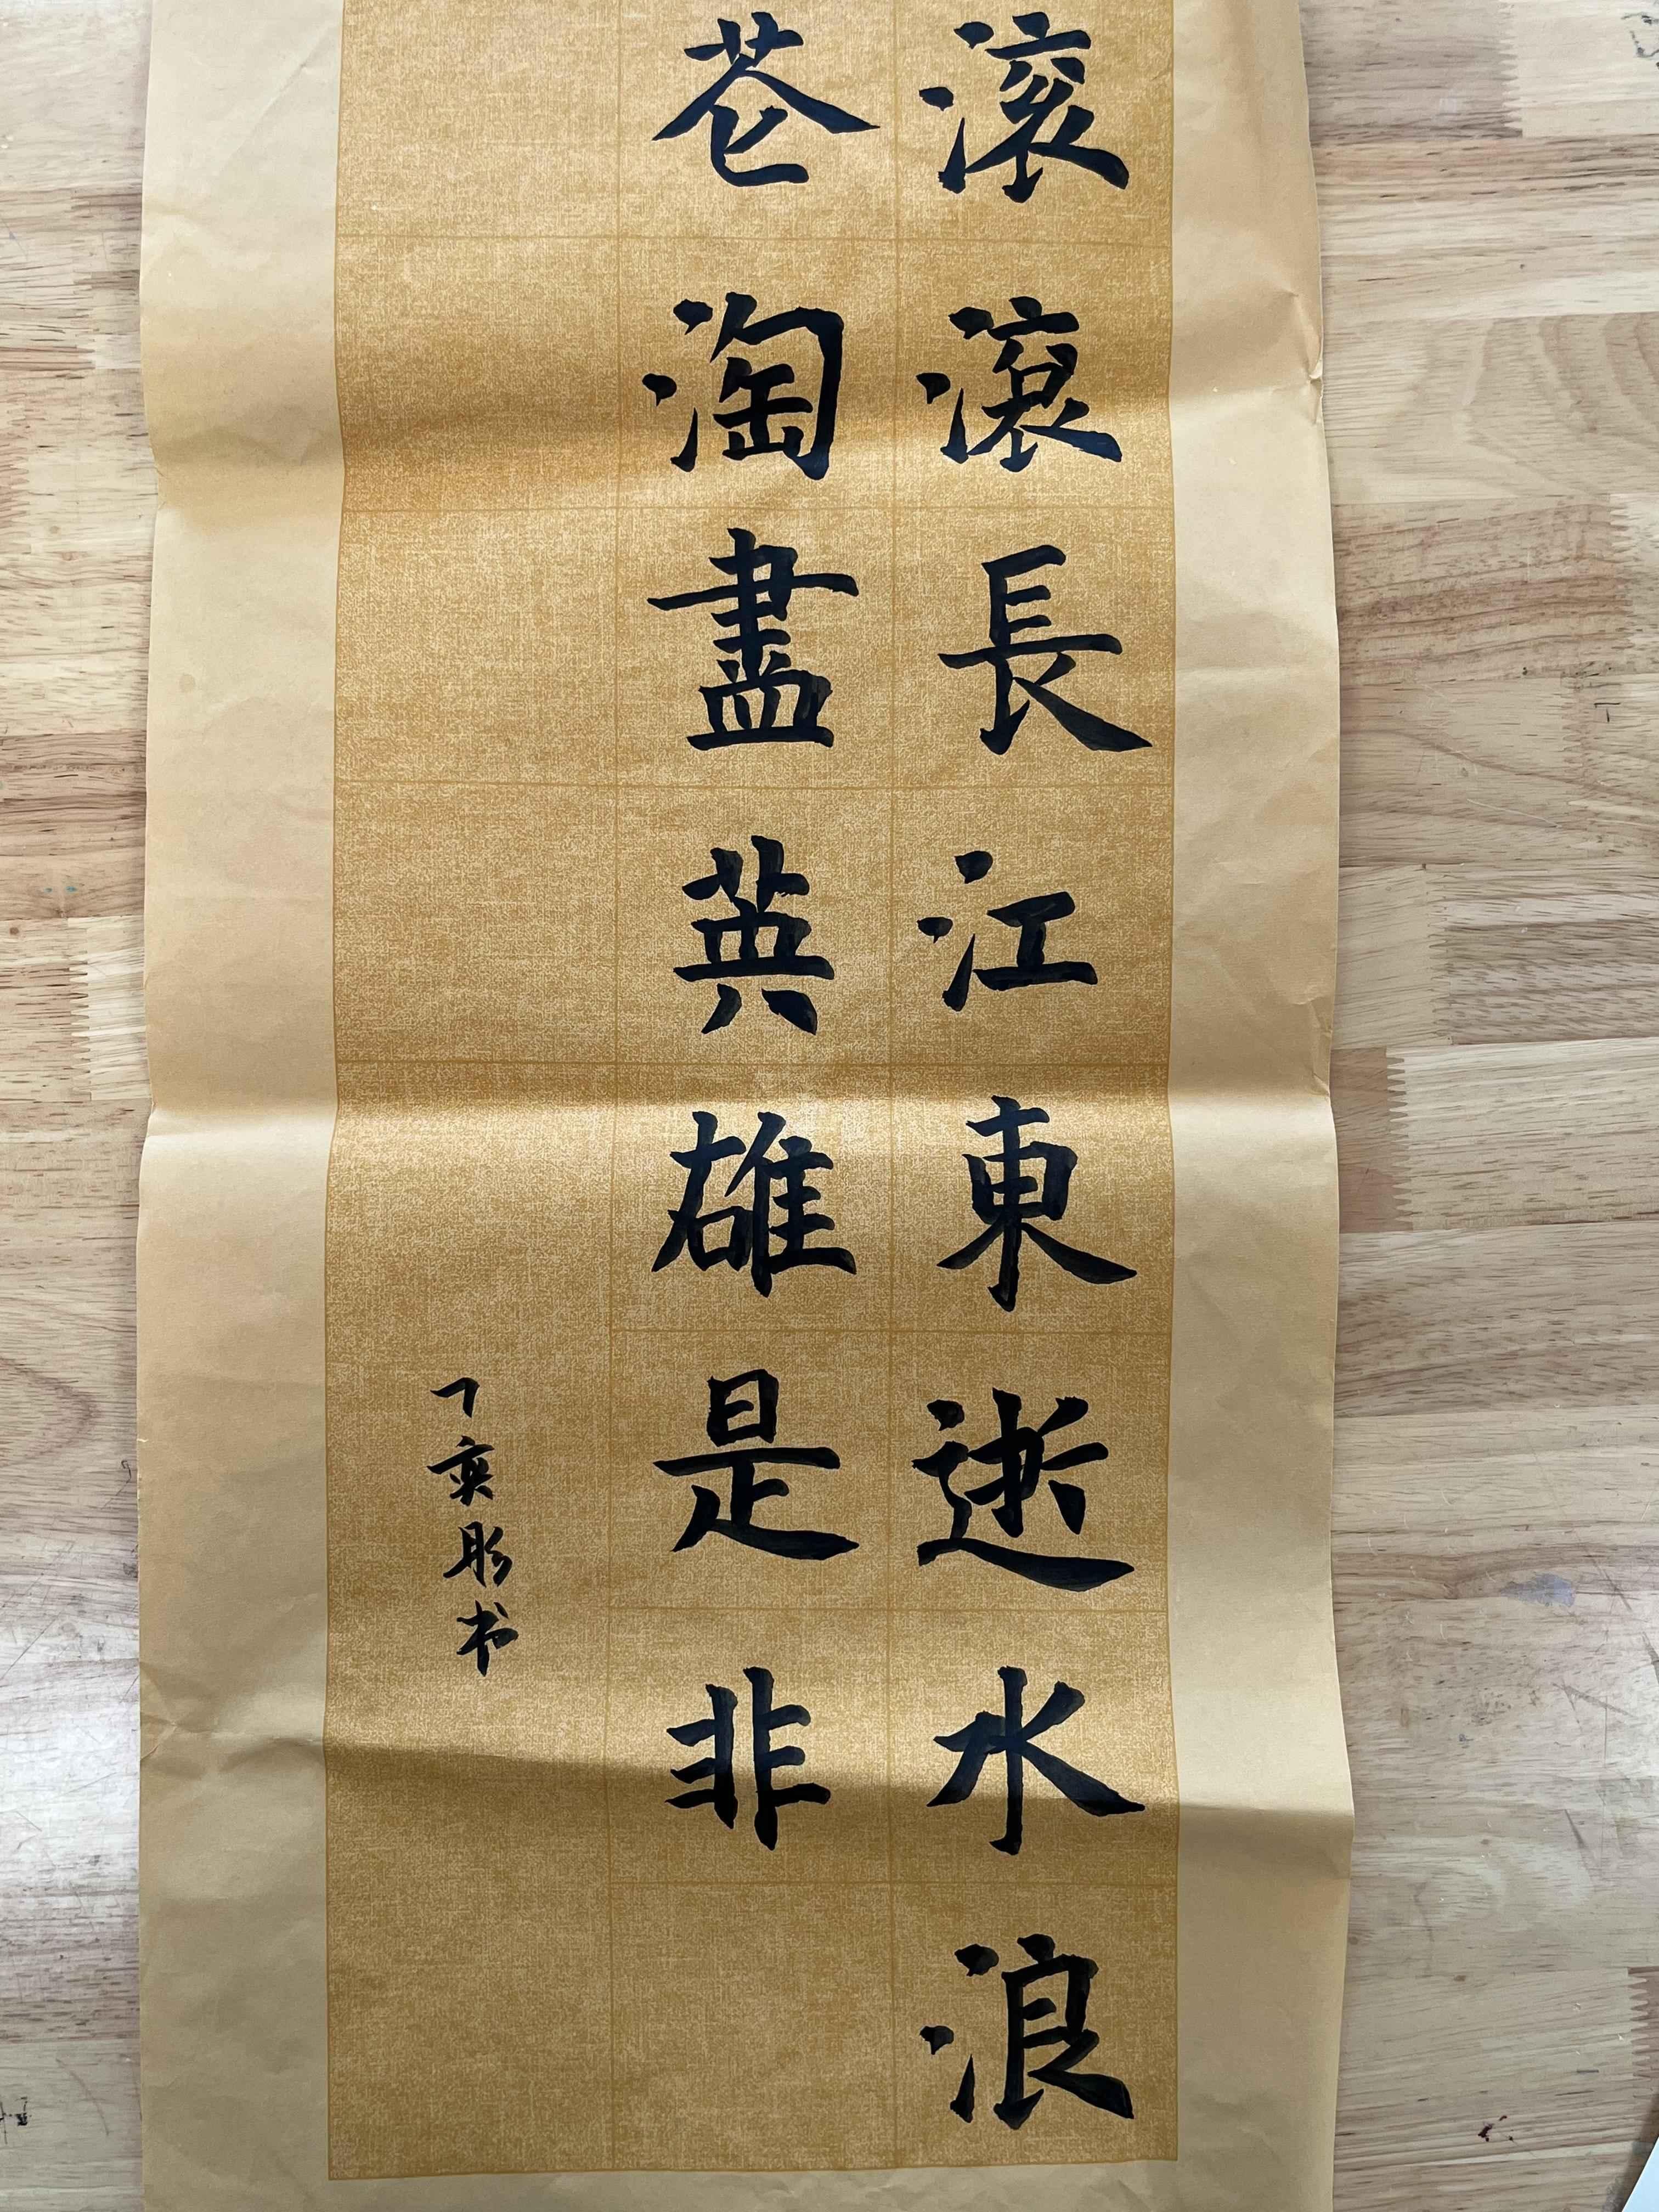 滚滚長江東逝水浪
苍淘盡英雄是非
丁奕彤书